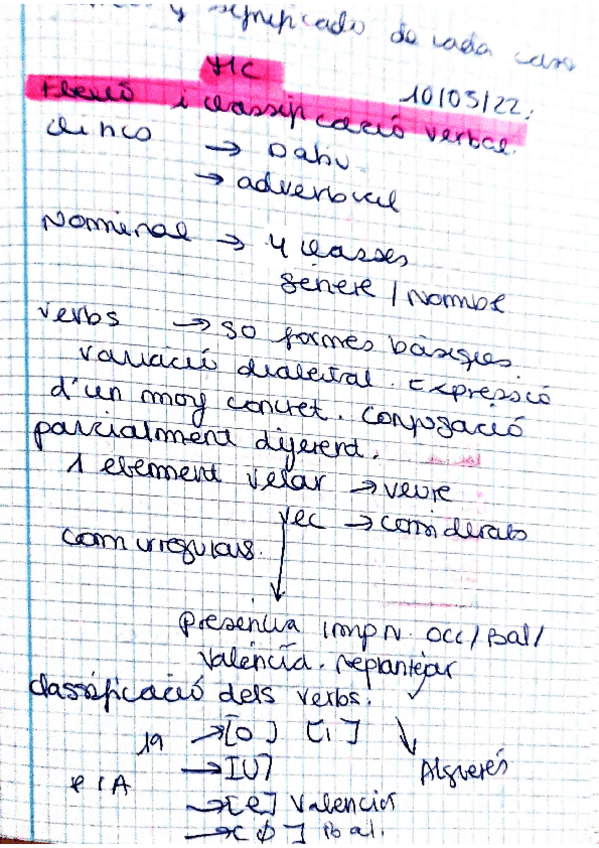 y significado de cada caso
TIC
10/05/22.
Flexió i classificació verbal.
clínco → Datiu
→ adverbial
Nominal → 4 classes
gènere / Nombre
verbs → 50 formes bàsiques.
variació dialectal. Expressió
d'un morf concret. Conjugació
parcialment diferent.
1 element velar → veure
vec → considerats
com irregulars.
Presència imp N. occ / Bal /
Valencià. replantejar
classificació dels verbs.
19 → [o] [i]
→ [U] Alguerés
PIA
→ [e] Valencià
→ [ø] Bal.